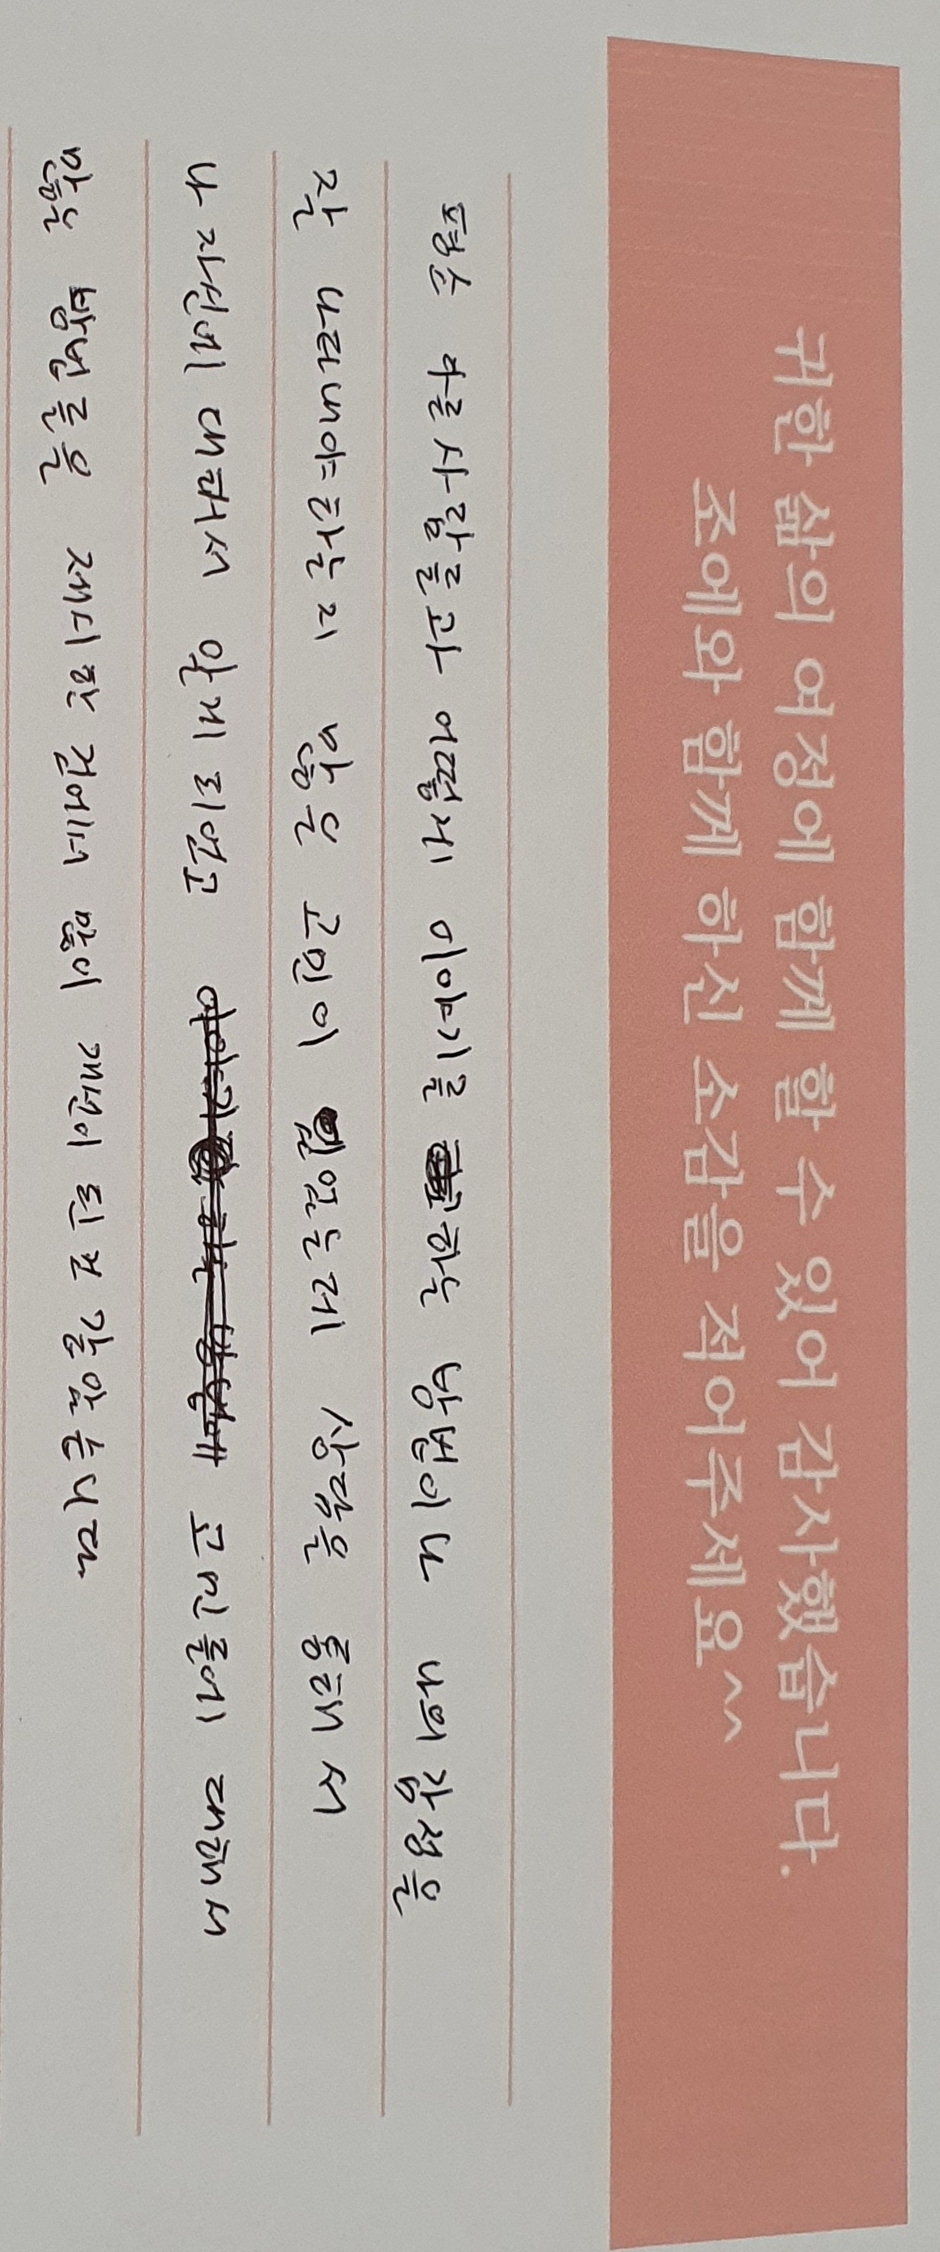 귀한 삶의 여정에 함께 할 수 있어 감사했습니다.
조에와 함께 하신 소감을 적어주세요^^
평소 주로 사람들과 어떻게 이야기를 하는 방법이나 나의 감정을
잘 나타내야하는지 많은 고민이 있었는데 상담을 통해서
나 자신에 대해서 알게 되었고 고민들에 대해서
많은 방법들을 제시한 것에서 많이 개선이 된것 같습니다